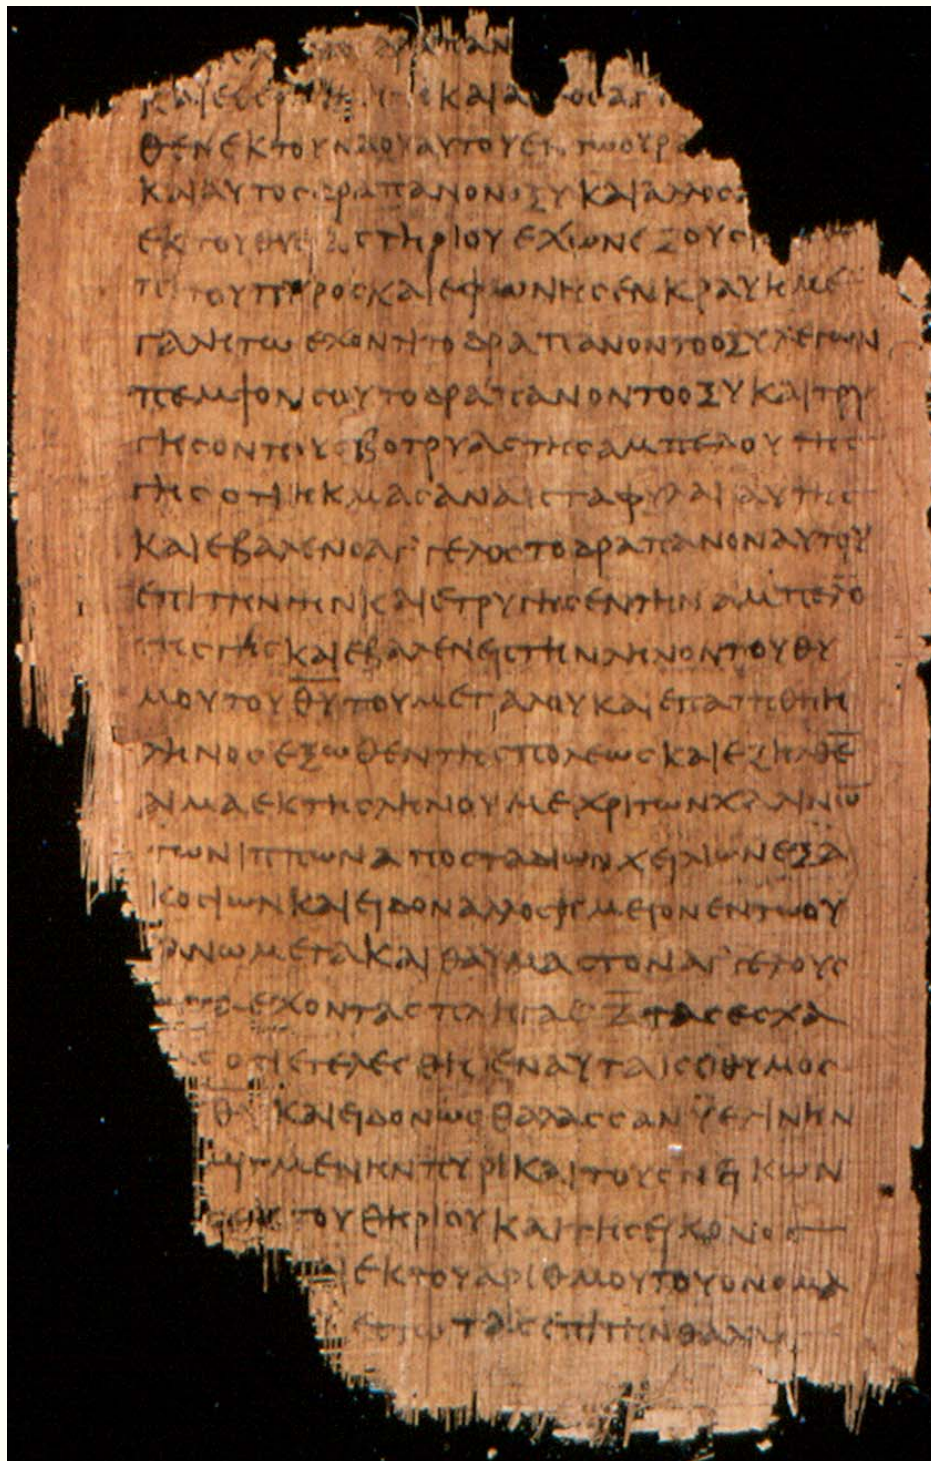 ΔΡΑΠΑΝ
ΚΑΙ ΚΑΙ
ΘΕΝΕΚΤΟΥΝΑΟΥΑΥΤΟΥΕΝΤΩΟΥΡΑ
ΚΑΙΑΥΤΟΣΔΡΑΠΑΝΟΝΟΞΥΚΑΙΑΛΛΟΣ
ΕΚΤΟΥΘΥΣΙΑΣΤΗΡΙΟΥΕΧΩΝΕΞΟΥΣΙ
ΤΟΥΠΥΡΟΣΚΑΙΕΦΩΝΗΣΕΝΚΡΑΥΓΗΜΕ
ΓΑΛΗΤΩΕΧΟΝΤΙΤΟΔΡΑΠΑΝΟΝΤΟΟΞΥΛΕΓΩΝ
ΠΕΜΨΟΝΣΟΥΤΟΔΡΑΠΑΝΟΝΤΟΟΞΥΚΑΙΤΡΥ
ΓΗΣΟΝΤΟΥΣΒΟΤΡΥΑΣΤΗΣΑΜΠΕΛΟΥΤΗΣ
ΓΗΣΟΤΙΗΚΜΑΣΑΝΑΙΣΤΑΦΥΛΑΙΑΥΤΗΣ
ΚΑΙΕΒΑΛΕΝΟΑΓ᾽ΓΕΛΟΣΤΟΔΡΑΠΑΝΟΝΑΥΤΟΥ
ΕΠΙΤΗΝΓΗΝΚΑΙΕΤΡΥΓΗΣΕΝΤΗΝΑΜΠΕΛΟ̅
ΤΗΣΓΗΣΚΑΙΕΒΑΛΕΝΕΙΣΤΗΝΛΗΝΟΝΤΟΥΘΥ
ΜΟΥΤΟΥΘ̅Υ̅ΤΟΥΜΕΓΑΛΟΥΚΑΙΕΠΑΤΗΘΗΗ
ΛΗΝΟΣΕΞΩΘΕΝΤΗΣΠΟΛΕΩΣΚΑΙΕΞΗΛΘΕ̅
ΑΙΜΑΕΚΤΗΣΛΗΝΟΥΜΕΧΡΙΤΩΝΧΑΛΙΝΩ̅
ΤΩΝΙΠΠΩΝΑΠΟΣΤΑΔΙΩΝΧΕΙΛΙΩΝΕΞΑ
ΚΟΣΙΩΝΚΑΙΕΙΔΟΝΑΛΛΟΣΗΜΕΙΟΝΕΝΤΩΟΥ
ΡΑΝΩΜΕΓΑΚΑΙΘΑΥΜΑΣΤΟΝΑΓ᾽ΓΕΛΟΥΣ
ΕΧΟΝΤΑΣΠΛΗΓΑΣΖ̅ΤΑΣΕΣΧΑ
ΣΟΤΙΕΤΕΛΕΣΘΗΕΝΑΥΤΑΙΣΟΘΥΜΟΣ
Θ̅Υ̅ΚΑΙΕΙΔΟΝΩΣΘΑΛΑΣΣΑΝΫΕΛΙΝΗΝ
ΜΙΓΜΕΝΗΝΠΥΡΙΚΑΙΤΟΥΣΝΕΙΚΩΝ
ΕΚΤΟΥΘΗΡΙΟΥΚΑΙΤΗΣΕΙΚΟΝΟΣ
ΕΚΤΟΥΑΡΙΘΜΟΥΤΟΥΟΝΟΜΑ
ΕΣΤΩΤΑΣΕΠΙΤΗΝΘΑΛΑ